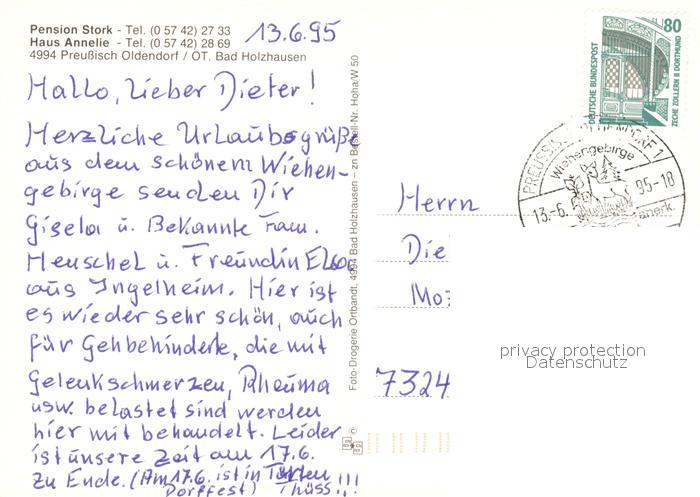 Pension Stork - Tel. (0 57 42) 27 33
Haus Annelie - Tel. (0 57 42) 28 69
4994 Preußisch Oldendorf / OT. Bad Holzhausen
13.6.95
Hallo, lieber Dieter!
Herzliche Urlaubsgrüße
aus dem schönem Wiehen-
gebirge senden Dir
Gisela u. Bekannte Fam.
Henschel u. Freundin
aus Ingelheim. Hier ist
es wieder sehr schön, auch
für Gehbehinderte, die mit
Gelenkschmerzen, Rheuma
usw. belastet sind werden
hier mit behandelt. Leider
ist unsere Zeit am 17.6.
zu Ende. (Am 17.6. ist in
Dorffest) Tschüss!!!
Foto-Drogerie Ortbandt, 4994 Bad Holzhausen – zn Bestell-Nr. Hoha/W 50
80
DEUTSCHE BUNDESPOST
ZECHE ZOLLERN II DORTMUND
PREUSSISCH OLDENDORF 1
Wiehengebirge
13.-6. 95-18
Herrn
Die
Mo
7324
privacy protection
Datenschutz